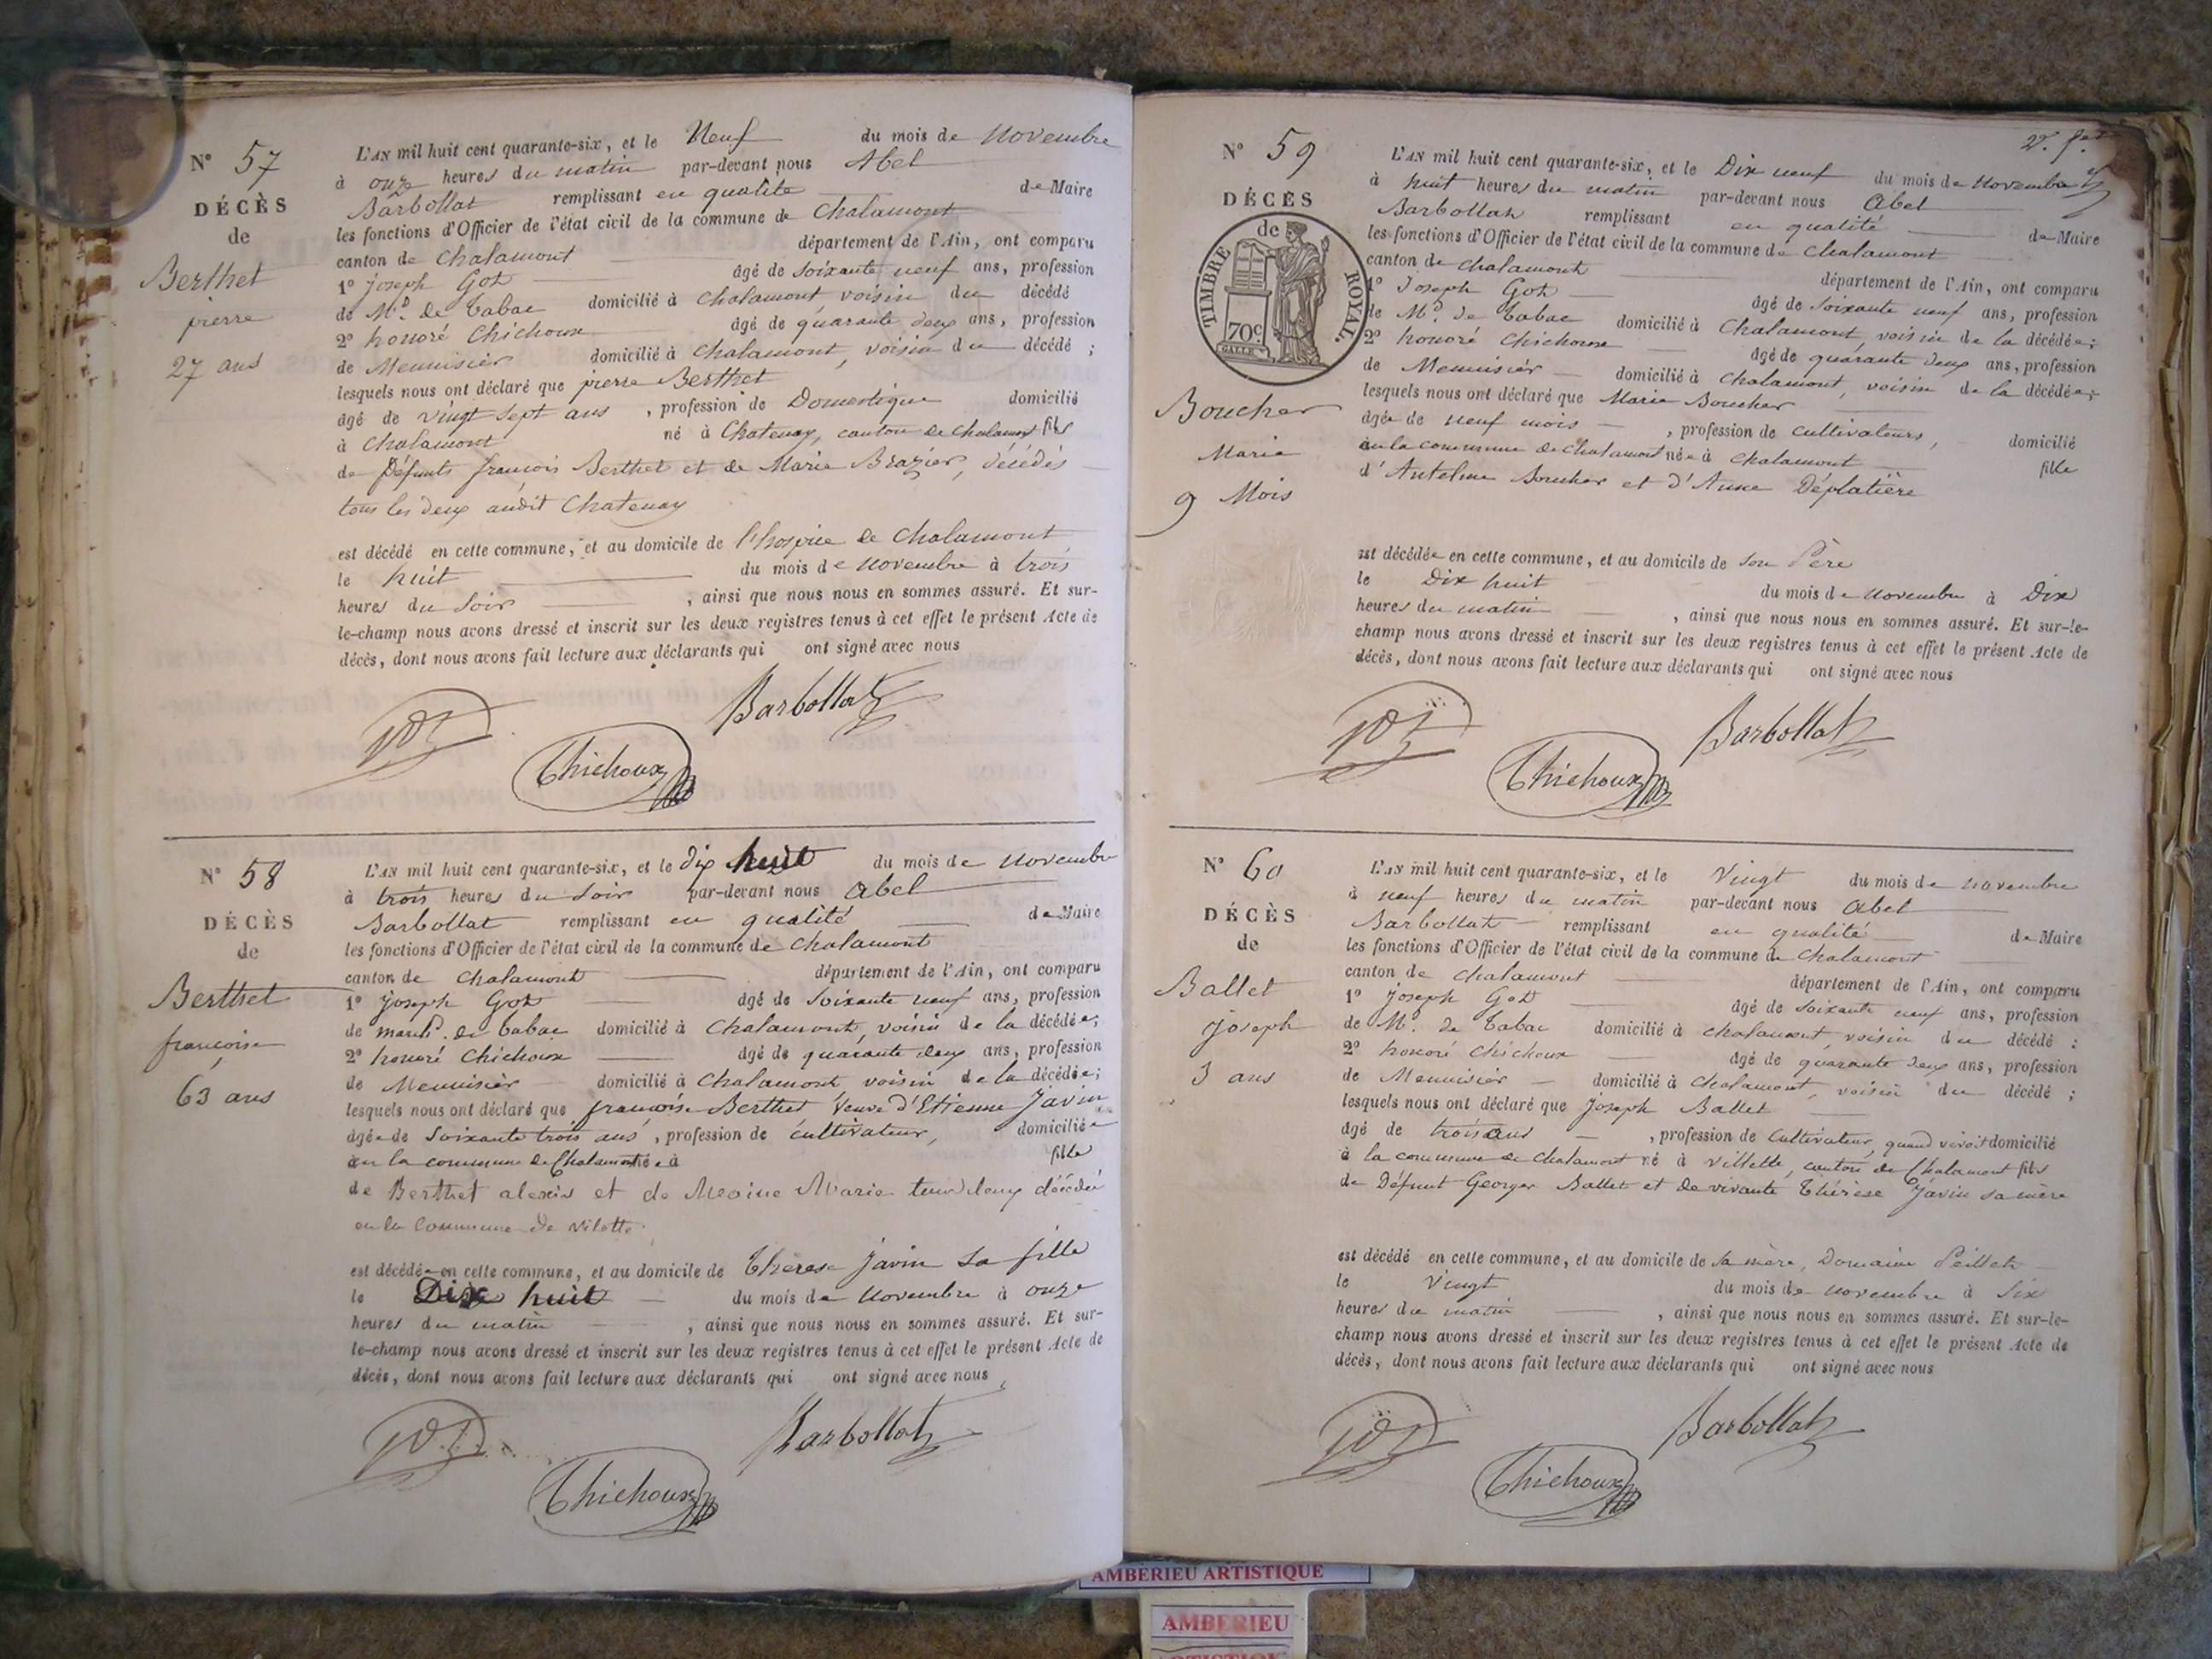 N° 57
DÉCÈS
de
Berthet
pierre
27 ans
L'AN mil huit cent quarante-six, et le Neuf du mois de Novembre
à onze heures du matin par-devant nous Abel
Barbollat remplissant en qualité de Maire
les fonctions d'Officier de l'état civil de la commune de Chalamont
canton de Chalamont département de l'Ain, ont comparu
1° Joseph Got âgé de soixante neuf ans, profession
de Md. de Tabac domicilié à Chalamont voisin du décédé
2° honoré Chichoux âgé de quarante deux ans, profession
de Menuisier domicilié à Chalamont, voisin du décédé ;
lesquels nous ont déclaré que pierre Berthet
âgé de vingt sept ans , profession de Domestique domicilié
à Chalamont né à Chatenay, canton de Chalamont fils
de Défunts françois Berthet et de Marie Brazier, décédés
tous les deux audit Chatenay
est décédé en cette commune, et au domicile de l'hospice de Chalamont
le huit du mois de Novembre à trois
heures du soir , ainsi que nous nous en sommes assuré. Et sur-
le-champ nous avons dressé et inscrit sur les deux registres tenus à cet effet le présent Acte de
décès, dont nous avons fait lecture aux déclarants qui ont signé avec nous
Got Chichoux Barbollat
N° 58
DÉCÈS
de
Berthet
françoise
63 ans
L'AN mil huit cent quarante-six, et le dix huit du mois de Novembre
à trois heures du soir par-devant nous Abel
Barbollat remplissant en qualité de Maire
les fonctions d'Officier de l'état civil de la commune de Chalamont
canton de Chalamont département de l'Ain, ont comparu
1° Joseph Got âgé de soixante neuf ans, profession
de march. de tabac domicilié à Chalamont, voisin de la décédée;
2° honoré Chichoux âgé de quarante deux ans, profession
de Menuisier domicilié à Chalamont, voisin de la décédée;
lesquels nous ont déclaré que françoise Berthet Veuve d'Etienne Javin
âgée de soixante trois ans , profession de cultivateur, domiciliée
en la commune de Chalamont née à fille
de Berthet alexis et de Marie tous deux décédés
en la Commune de Vilette.
est décédée en cette commune, et au domicile de Thérèse Javin sa fille
le Dix huit du mois de Novembre à onze
heures du matin , ainsi que nous nous en sommes assuré. Et sur-
le-champ nous avons dressé et inscrit sur les deux registres tenus à cet effet le présent Acte de
décès, dont nous avons fait lecture aux déclarants qui ont signé avec nous,
Got Chichoux Barbollat
N° 59
DÉCÈS
de
TIMBRE ROYAL.
70c.
Boucher
Marie
9 Mois
L'AN mil huit cent quarante-six, et le Dix neuf du mois de Novembre
à huit heures du matin par-devant nous Abel
Barbollat remplissant en qualité de Maire
les fonctions d'Officier de l'état civil de la commune de Chalamont
canton de Chalamont département de l'Ain, ont comparu
1° Joseph Got âgé de soixante neuf ans, profession
de Md. de Tabac domicilié à Chalamont, voisin de la décédée;
2° honoré Chichoux âgé de quarante deux ans, profession
de Menuisier domicilié à Chalamont, voisin de la décédée;
lesquels nous ont déclaré que Marie Boucher
âgée de neuf mois , profession de cultivateurs, domicilié
en la commune de Chalamont née à Chalamont fille
d'Antelme Boucher et d'Anne Déplatière
est décédée en cette commune, et au domicile de son Père
le Dix huit du mois de Novembre à Dix
heures du matin , ainsi que nous nous en sommes assuré. Et sur-le-
champ nous avons dressé et inscrit sur les deux registres tenus à cet effet le présent Acte de
décès, dont nous avons fait lecture aux déclarants qui ont signé avec nous
Got Chichoux Barbollat
N° 60
DÉCÈS
de
Ballet
Joseph
3 ans
L'AN mil huit cent quarante-six, et le Vingt du mois de novembre
à neuf heures du matin par-devant nous Abel
Barbollat remplissant en qualité de Maire
les fonctions d'Officier de l'état civil de la commune de Chalamont
canton de Chalamont département de l'Ain, ont comparu
1° Joseph Got âgé de soixante neuf ans, profession
de Md. de Tabac domicilié à Chalamont, voisin du décédé :
2° honoré Chichoux âgé de quarante deux ans, profession
de Menuisier domicilié à Chalamont, voisin du décédé ;
lesquels nous ont déclaré que Joseph Ballet
âgé de trois ans , profession de Cultivateur, quand vivoit domicilié
à la commune de Chalamont né à Villette, canton de Chalamont fils
de Défunt Georges Ballet et de vivante Thérèse Javin sa mère
est décédé en cette commune, et au domicile de sa mère, Domaine Peillet
le Vingt du mois de novembre à six
heures du matin , ainsi que nous nous en sommes assuré. Et sur-le-
champ nous avons dressé et inscrit sur les deux registres tenus à cet effet le présent Acte de
décès, dont nous avons fait lecture aux déclarants qui ont signé avec nous
Got Chichoux Barbollat
AMBERIEU ARTISTIQUE
AMBERIEU